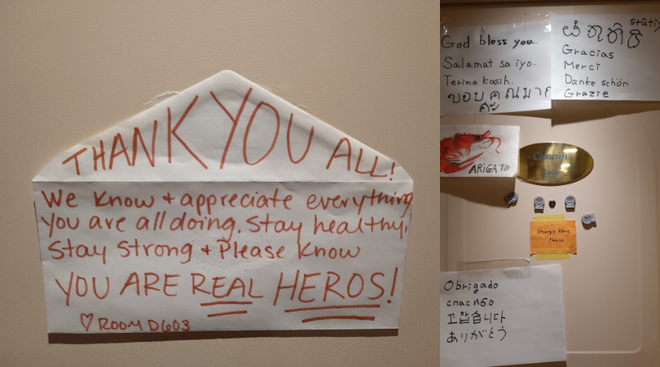 THANK YOU ALL!
We know + appreciate everything
you are all doing. Stay healthy,
Stay Strong + Please know
YOU ARE REAL HEROS!
♡ ROOM D603
God bless you.
Salamat sa iyo.
Terima kasih.
ขอบคุณมาก
ค่ะ
Gracias
Merci
Danke schön
Grazie
ARIGATO
Obrigado
спасибо
고맙습니다
ありがとう